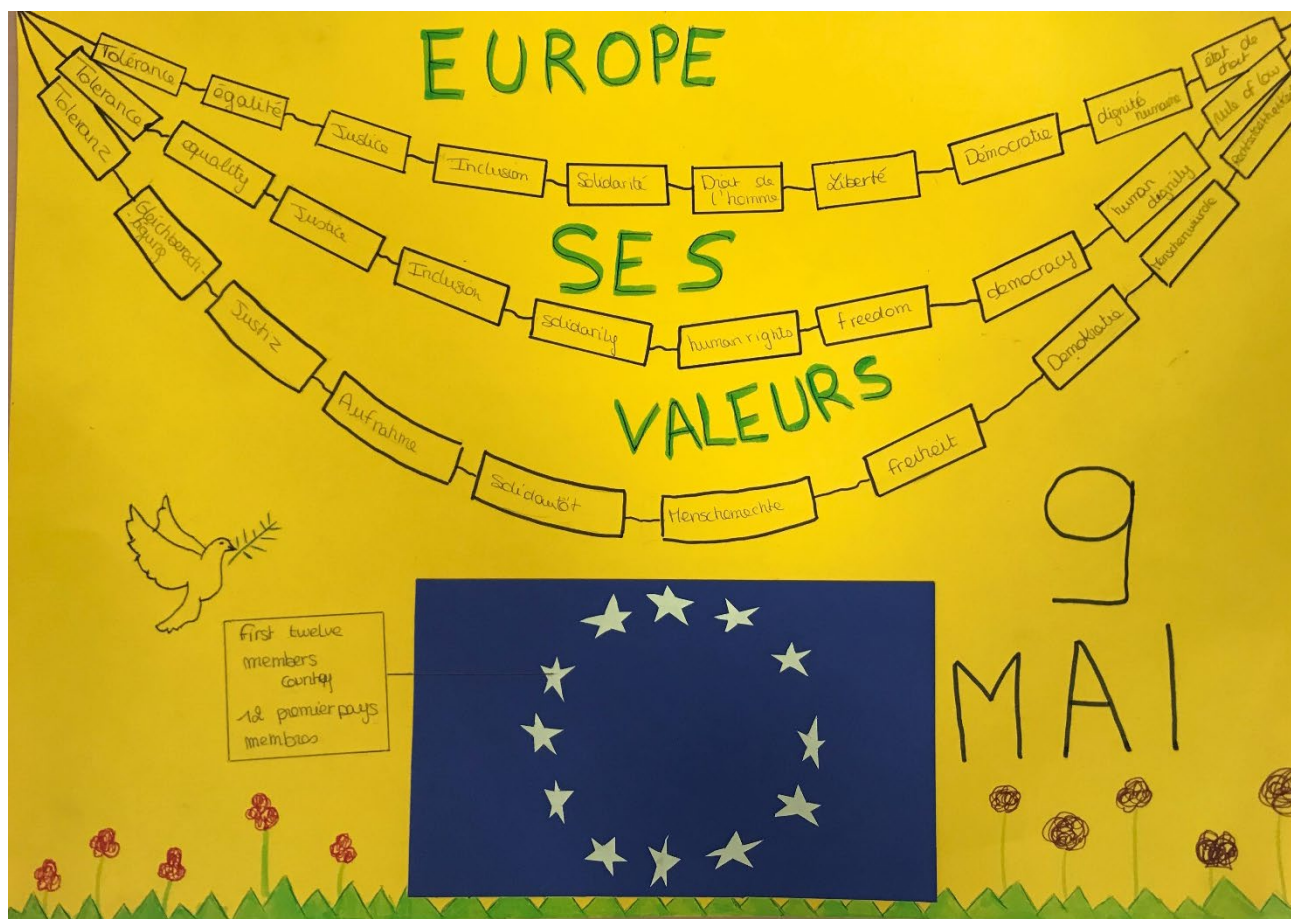 EUROPE
Tolérance
égalité
Justice
Inclusion
Solidarité
Droit de
l'homme
Liberté
Démocratie
dignité
humaine
état de
droit
SES
Tolerance
equality
Justice
Inclusion
solidarity
human rights
freedom
democracy
human
dignity
rule of low
VALEURS
Toleranz
Gleichberech-
Justiz
Aufnahme
Solidarität
Menschenrechte
freiheit
Demokratie
Menschenwurde
9
MAI
first twelve
members
country
12 premier pays
membres